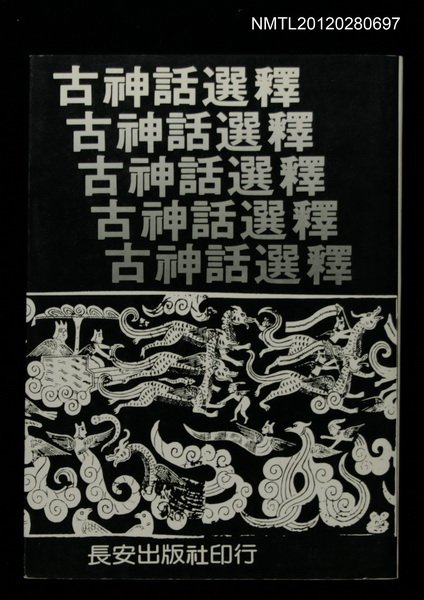 NMTL20120280697
古神話選釋
古神話選釋
古神話選釋
古神話選釋
古神話選釋
長安出版社印行